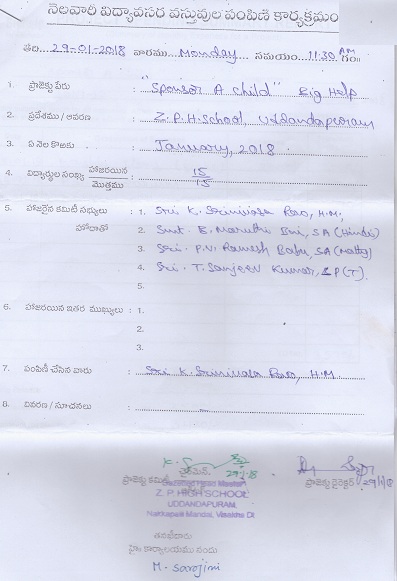 నెలవారీ విద్యావసర వస్తువుల పంపిణీ కార్యక్రమం
తేది...29-01-2018 వారము... Monday... సమయం... 11:30 AM గం॥
1. ప్రాజెక్టు పేరు : "Sponsor A child" Big Help
2. ప్రదేశము / ఆవరణ : Z.P.H.School, Uddandapuram
3. ఏ నెల కొఱకు : January, 2018
4. విద్యార్థుల సంఖ్య హాజరయిన / మొత్తము : 15/15
5. హాజరైన కమిటీ సభ్యులు : 1. Sri K. Srinivasa Rao, H.M.,
హోదాతో 2. Smt. B. Maruthi Bai, SA (Hindi)
3. Sri. P.V. Ramesh Babu, SA (Maths)
4. Sri. T. Sanjeev Kumar, LP(T).
5.
6. హాజరయిన ఇతర ముఖ్యులు : 1.
2.
3.
7. పంపిణీ చేసిన వారు : Sri K. Srinivasa Rao, H.M.
8. వివరణ / సూచనలు :
29-1-18
ప్రాజెక్టు కమిటీ
ప్రాజెక్టు డైరెక్టర్ 29/1/18
Z. P. HIGH SCHOOL
UDDANDAPURAM,
Nakkapalli Mandal, Visakha Dt.
M. Sarojini